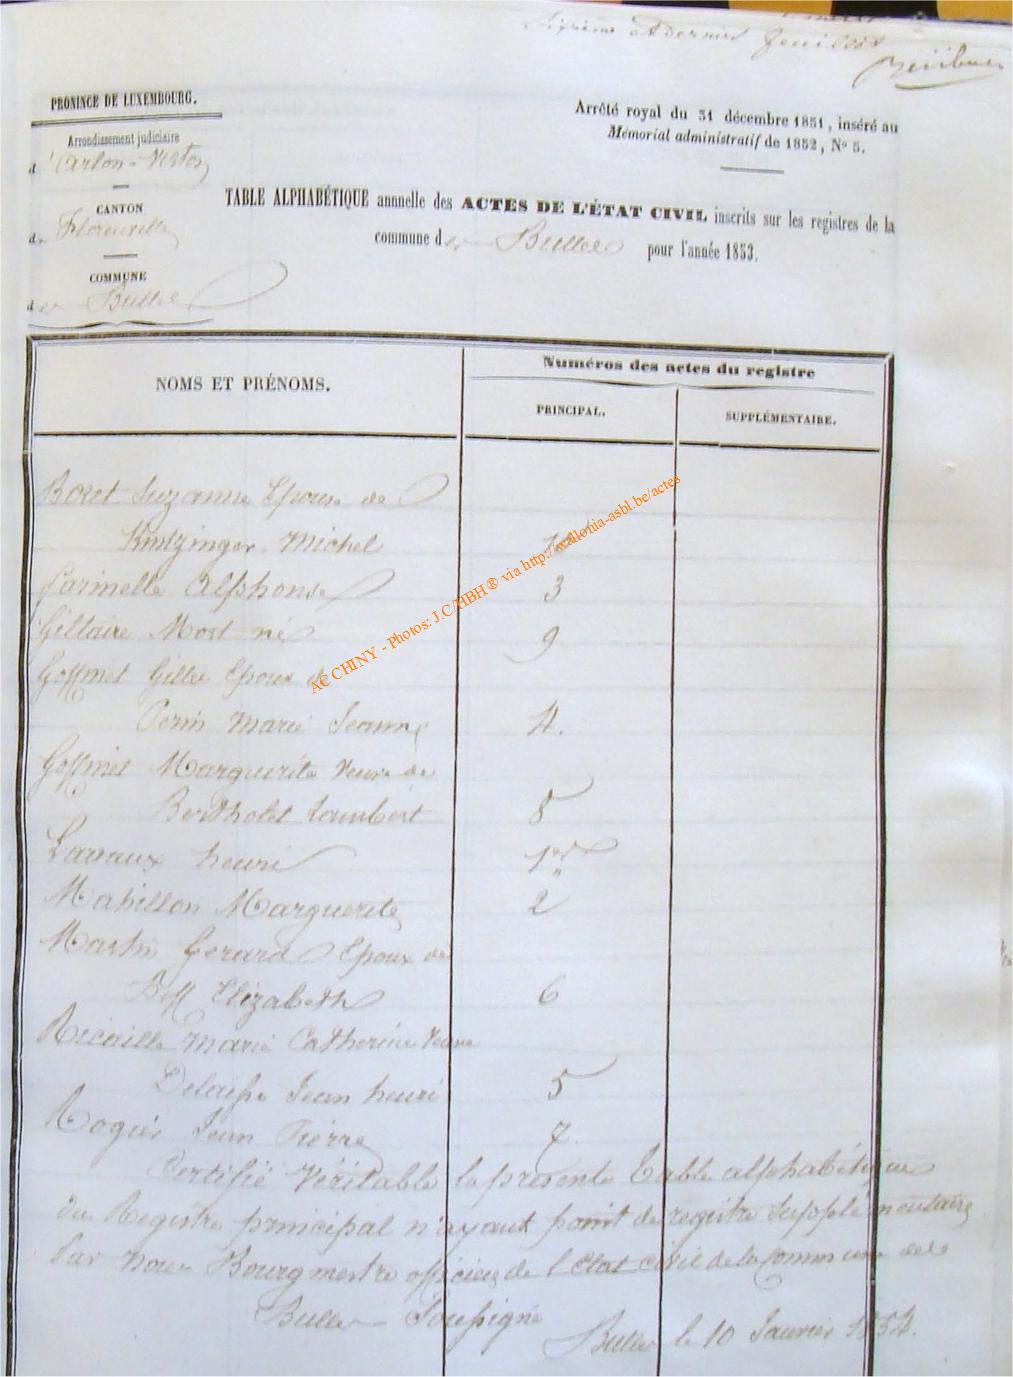 dernier feuillet
PRONINCE DE LUXEMBOURG.
Arrêté royal du 31 décembre 1851, inséré au
Mémorial administratif de 1852, No 5.
Arrondissement judiciaire
d'Arlon-Virton
CANTON
de Florenville
COMMUNE
de Bulles
TABLE ALPHABÉTIQUE annnelle des ACTES DE L'ÉTAT CIVIL inscrits sur les registres de la
commune de Bulles pour l'année 1853.
NOMS ET PRÉNOMS.
Numéros des actes du registre
PRINCIPAL.
SUPPLÉMENTAIRE.
Suzanne Epouse de
Kintzinger Michel 10
Alphonse 3
Giltaire Mort né 9
Goffinet Gilles Epoux de
Perin Marie Jeanne 4.
Goffinet Marguerite Veuve de
Bertholet Lambert 8
Lavaux henri 1er
Mahillon Marguerite 2
Martin Gerard Epoux de
Elizabeth 6
Ricaille Marie Catherine Veuve
Jean henri 5
Rogier Jean Pierre 7.
Certifié Véritable la présente Table alphabétique
du Registre principal n'ayant point de registre Supplémentaire
Par nous Bourgmestre officier de l'Etat civil de la Commune de
Bulles Soussigné
Bulles le 10 Janvier 1854.
AC CHINY - Photos: J.C/HBH® via http://wallonia-asbl.be/actes